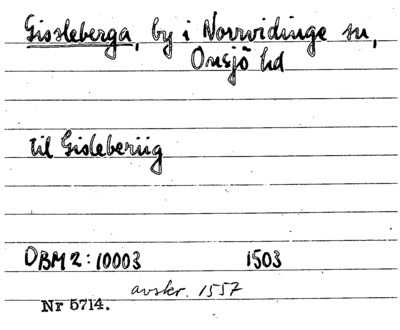 Gissleberga, by i Norrvidinge sn,
Onsjö hd
til Gisleberiig
DBM 2: 10003 1503
avskr. 1557
Nr 5714.